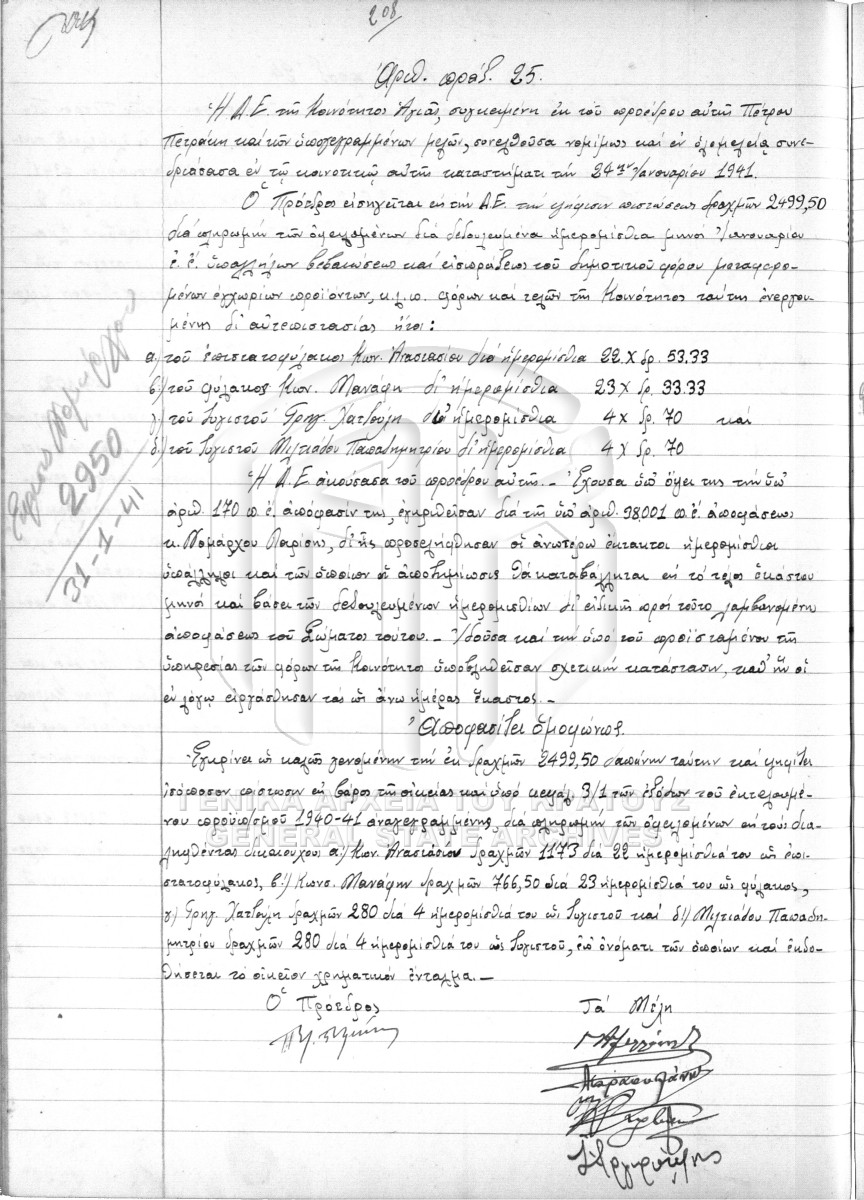 208
Ἀριθ. πράξ. 25.
Ἡ Δ.Ε. τῆς Κοινότητος Ἁγιᾶς, συγκειμένη ἐκ τοῦ προέδρου αὐτῆς Πέτρου
Πετράκη καὶ τῶν ὑπογεγραμμένων μελῶν, συνελθοῦσα νομίμως καὶ ἐν ὁλομελείᾳ συνε-
δριάσασα ἐν τῷ κοινοτικῷ αὐτῆς καταστήματι τὴν 24ην Ἰανουαρίου 1941.
Ὁ Πρόεδρος εἰσηγεῖται εἰς τὴν Δ.Ε. τὴν ψήφισιν πιστώσεως δραχμῶν 2499,50
διὰ πληρωμὴν τῶν ὀφειλομένων διὰ δεδουλευμένα ἡμερομίσθια μηνὸς Ἰανουαρίου
ἐ. ἔ. ὑπαλλήλων βεβαιώσεως καὶ εἰσπράξεως τοῦ δημοτικοῦ φόρου μεταφερο-
μένων ἐγχωρίων προϊόντων, κ.λ.π. φόρων καὶ τελῶν τῆς Κοινότητος ταύτης ἐνεργου-
μένης δι' αὐτεπιστασίας ἤτοι:
α) τοῦ ἐπιστατοφύλακος Κων. Ἀναστασίου διὰ ἡμερομίσθια 22 Χ δρ. 53.33
β) τοῦ φύλακος Κων. Μανάφη δι' ἡμερομίσθια 23 Χ δρ. 33.33
γ) τοῦ ζυγιστοῦ Γρηγ. Χατζούλη δι' ἡμερομίσθια 4 Χ δρ. 70 καὶ
δ) τοῦ ζυγιστοῦ Μιλτιάδου Παπαδημητρίου δι' ἡμερομίσθια 4 Χ δρ. 70
Ἡ Δ.Ε. ἀκούσασα τοῦ προέδρου αὐτῆς.- Ἔχουσα ὑπ' ὄψει της τὴν ὑπ'
ἀριθ. 170 π.ἔ. ἀπόφασίν της, ἐγκριθεῖσαν διὰ τῆς ὑπ' ἀριθ. 98.001 π.ἔ. ἀποφάσεως
κ. Νομάρχου Λαρίσης, δι' ἧς προσελήφθησαν οἱ ἀνωτέρω ἔκτακτοι ἡμερομίσθιοι
ὑπάλληλοι καὶ τῶν ὁποίων ἡ ἀποζημίωσις θὰ καταβάλληται εἰς τὸ τέλος ἑκάστου
μηνὸς καὶ βάσει τῶν δεδουλευμένων ἡμερομισθίων δι' εἰδικῆς πρὸς τοῦτο λαμβανομένης
ἀποφάσεως τοῦ Σώματος τούτου.- Ἰδοῦσα καὶ τὴν ὑπὸ τοῦ προϊσταμένου τῆς
ὑπηρεσίας τῶν φόρων τῆς Κοινότητος ὑποβληθεῖσαν σχετικὴν κατάστασιν, καθ' ἣν οἱ
ἐν λόγῳ εἰργάσθησαν τὰς ὡς ἄνω ἡμέρας ἕκαστος.-
Ἀποφασίζει ὁμοφώνως.
Ἐγκρίνει ὡς καλῶς γενομένην τὴν ἐκ δραχμῶν 2499,50 δαπάνην ταύτην καὶ ψηφίζει
ἰσόποσον πίστωσιν εἰς βάρος τῆς οἰκείας καὶ ὑπὸ κεφάλ. 3/1 τῶν ἐξόδων τοῦ ἐκτελουμέ-
νου προϋπ/σμοῦ 1940-41 ἀναγεγραμμένης, διὰ πληρωμὴν τῶν ὀφειλομένων εἰς τοὺς δια-
ληφθέντας δικαιούχους α') Κων. Ἀναστασίου δραχμῶν 1173 διὰ 22 ἡμερομίσθιά του ὡς ἐπι-
στατοφύλακος, β') Κωνσ. Μανάφην δραχμῶν 766,50 διὰ 23 ἡμερομίσθιά του ὡς φύλακος,
γ) Γρηγ. Χατζούλη δραχμῶν 280 διὰ 4 ἡμερομίσθιά του ὡς ζυγιστοῦ καὶ δ') Μιλτιάδου Παπαδη-
μητρίου δραχμῶν 280 διὰ 4 ἡμερομίσθιά του ὡς ζυγιστοῦ, ἐπ' ὀνόματι τῶν ὁποίων καὶ ἐκδο-
θήσεται τὸ οἰκεῖον χρηματικὸν ἔνταλμα.-
Ὁ Πρόεδρος
Τὰ Μέλη
2950
31-1-41
ΓΕΝΙΚΑ ΑΡΧΕΙΑ ΤΟΥ ΚΡΑΤΟΥΣ
GENERAL STATE ARCHIVES